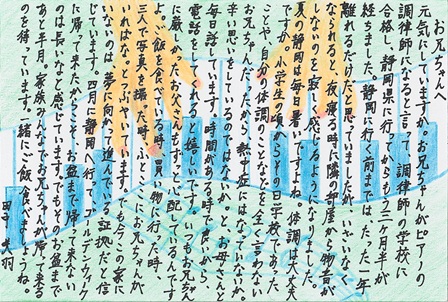 お兄ちゃんへ
元気にしていますか。お兄ちゃんがピアノの
調律師になると言って、調律師の学校に
合格し、静岡県に行ってからもう三ヶ月半が
経ちました。静岡に行く前までは、たった一年
離れるだけだと思っていましたが、いざいなく
なられると、夜寝る時に隣の部屋から物音が
しないのを寂しく感じるようになりました。
夏の静岡は毎日暑いですし、体調は大丈夫
ですか。小学生の頃からその日学校であった
ことや、自分の体調のことなどを全く言わない
お兄ちゃんだったから、熱中症にはなっていないか。
辛い思いをしているのではないか。と、お母さんと
毎日話しています。時間がある時で良いから、
電話をしてくれると嬉しいです。いつもお兄ちゃん
に厳しかったお父さんもずっと心配しているんです
よ。ご飯を食べている時、買い物に行く時、
三人で写真を撮った時、ふと、お兄ちゃんが
いればな。とつぶやいています。でも今この家に
いないのは夢に向かって進んでいる証拠だと信
じています。四月に静岡へ行ってゴールデンウィーク
に帰って来たからこそ、お盆まで帰って来ない
のは長いなと感じています。次のお盆まで
あと半月。家族みんなでお兄ちゃんが帰って来る
のを待っています。一緒にご飯食べましょうね。
田中